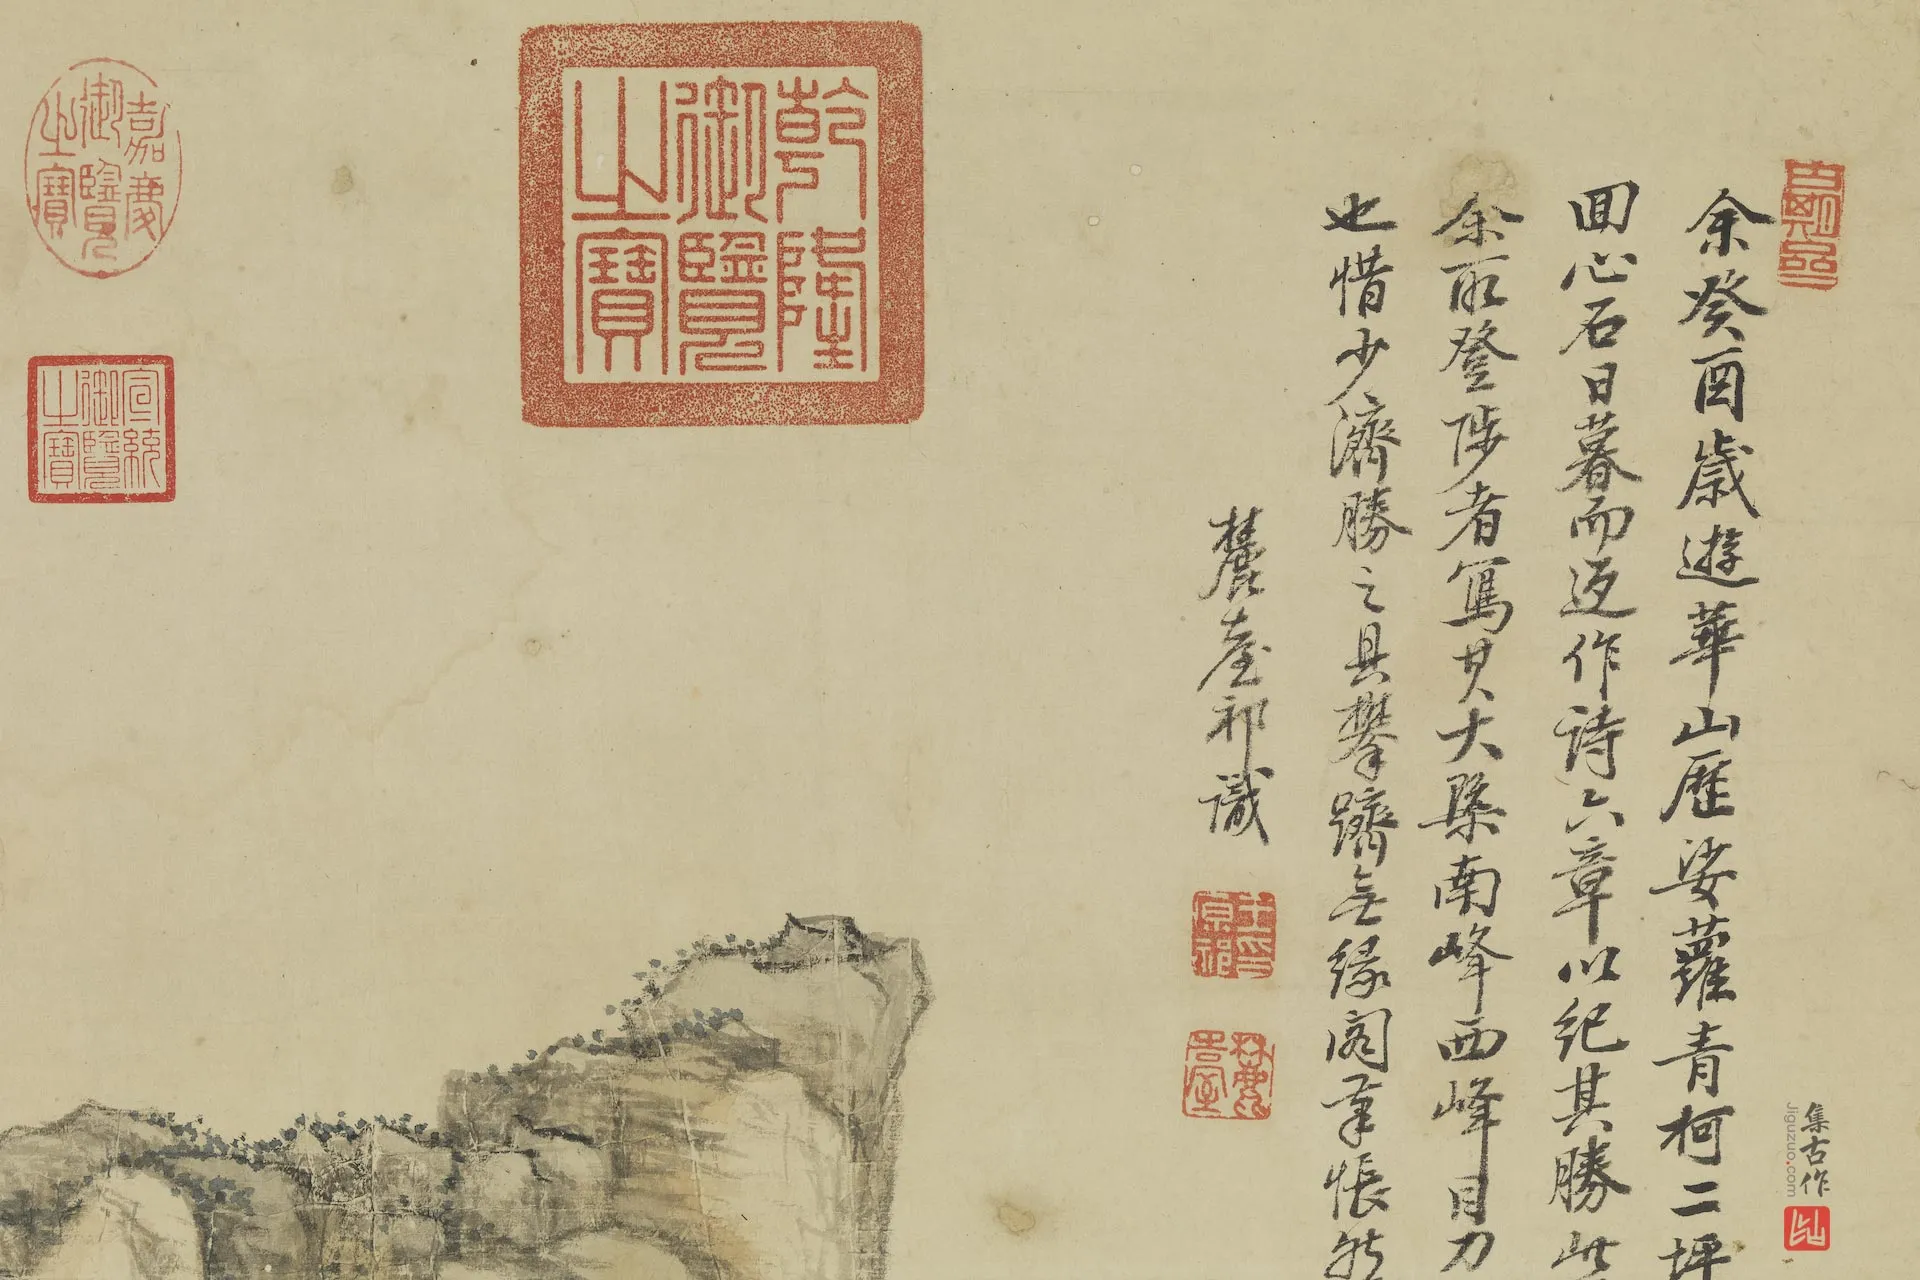 余癸酉歲遊華山歷娑蘿青柯二坪
回心石日暮而返作诗六章以纪其勝此
余所登陟者寫其大槩南峰西峰目力
也惜少濟勝之具攀躋無緣阁筆悵然
麓臺祁識
王原祁印
麓臺
乾隆御覽之寶
嘉慶御覽之寶
宣統御覽之寶
集古作
Jiguzuo.com